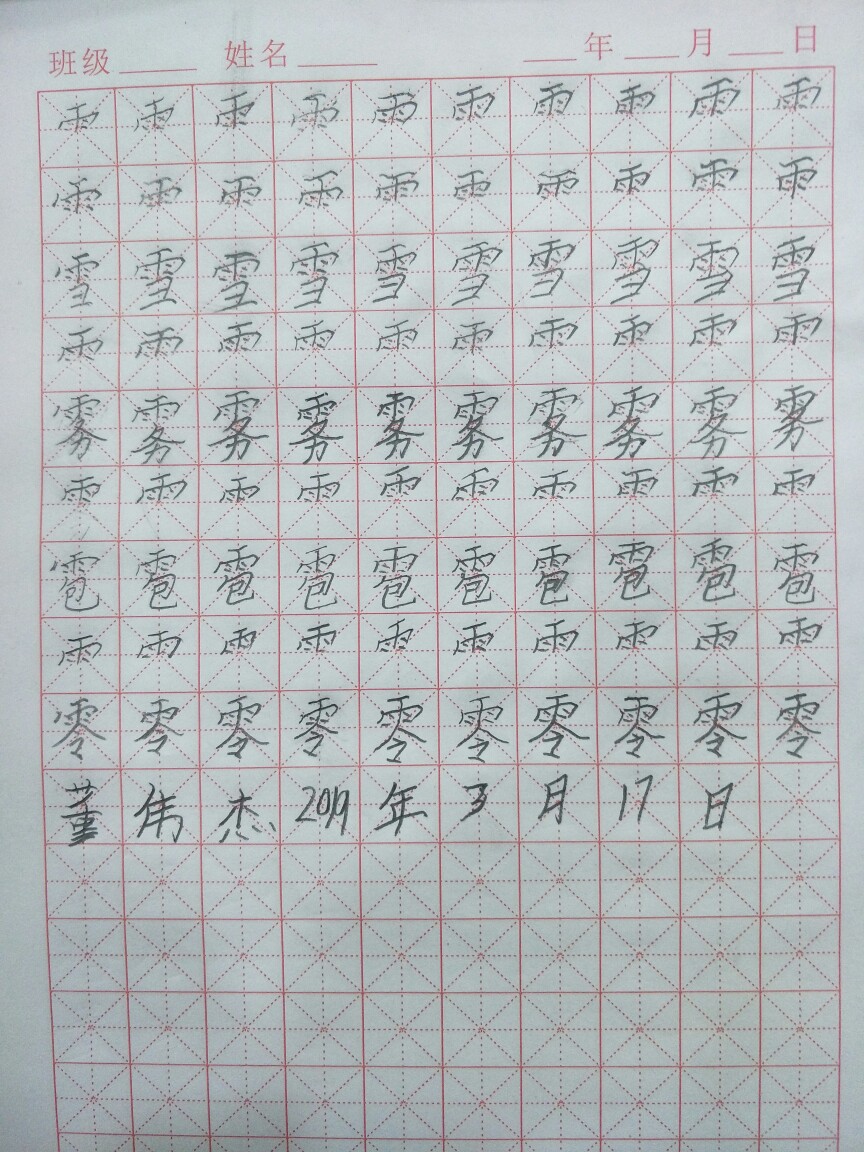 班级 姓名 年 月 日
⻗ ⻗ ⻗ ⻗ ⻗ ⻗ ⻗ ⻗ ⻗ ⻗
⻗ ⻗ ⻗ ⻗ ⻗ ⻗ ⻗ ⻗ ⻗ ⻗
雪 雪 雪 雪 雪 雪 雪 雪 雪 雪
⻗ ⻗ ⻗ ⻗ ⻗ ⻗ ⻗ ⻗ ⻗ ⻗
雾 雾 雾 雾 雾 雾 雾 雾 雾 雾
⻗ ⻗ ⻗ ⻗ ⻗ ⻗ ⻗ ⻗ ⻗ ⻗
雹 雹 雹 雹 雹 雹 雹 雹 雹 雹
⻗ ⻗ ⻗ ⻗ ⻗ ⻗ ⻗ ⻗ ⻗ ⻗
零 零 零 零 零 零 零 零 零 零
董 伟 杰 2019 年 3 月 17 日